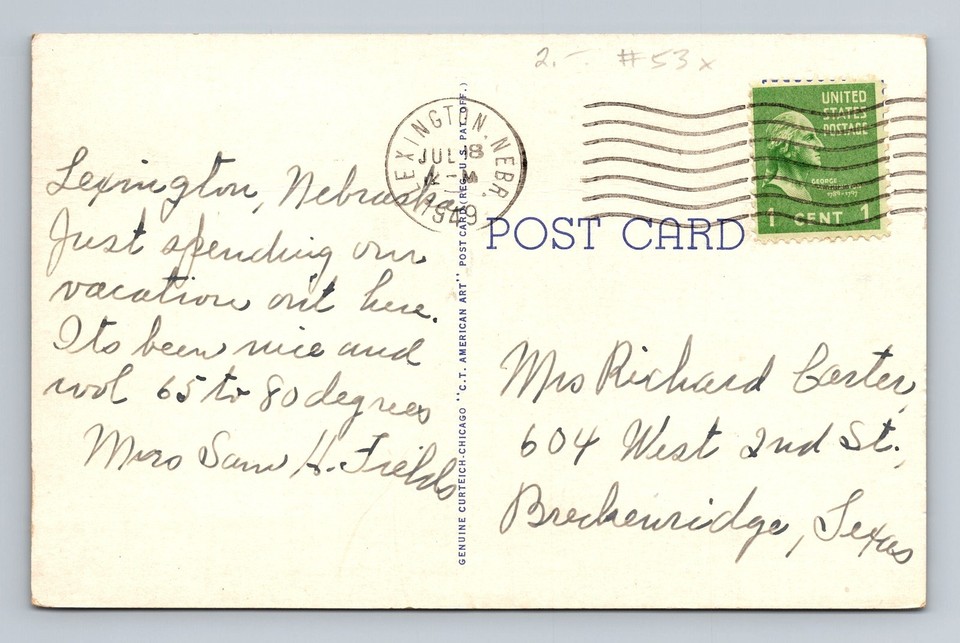 2.- #53x
LEXINGTON, NEBR.
JUL 8
UNITED
STATES
POSTAGE
GEORGE
1 CENT 1
POST CARD
GENUINE CURTEICH-CHICAGO "C.T. AMERICAN ART" POST CARD (REG. U.S. PAT. OFF.)
Lexington, Nebraska
Just spending our
vacation out here.
Its been nice and
cool 65 to 80 degrees
Mrs Sam H. Fields
Mrs Richard Carter,
604 West 2nd St.,
Breckenridge, Texas